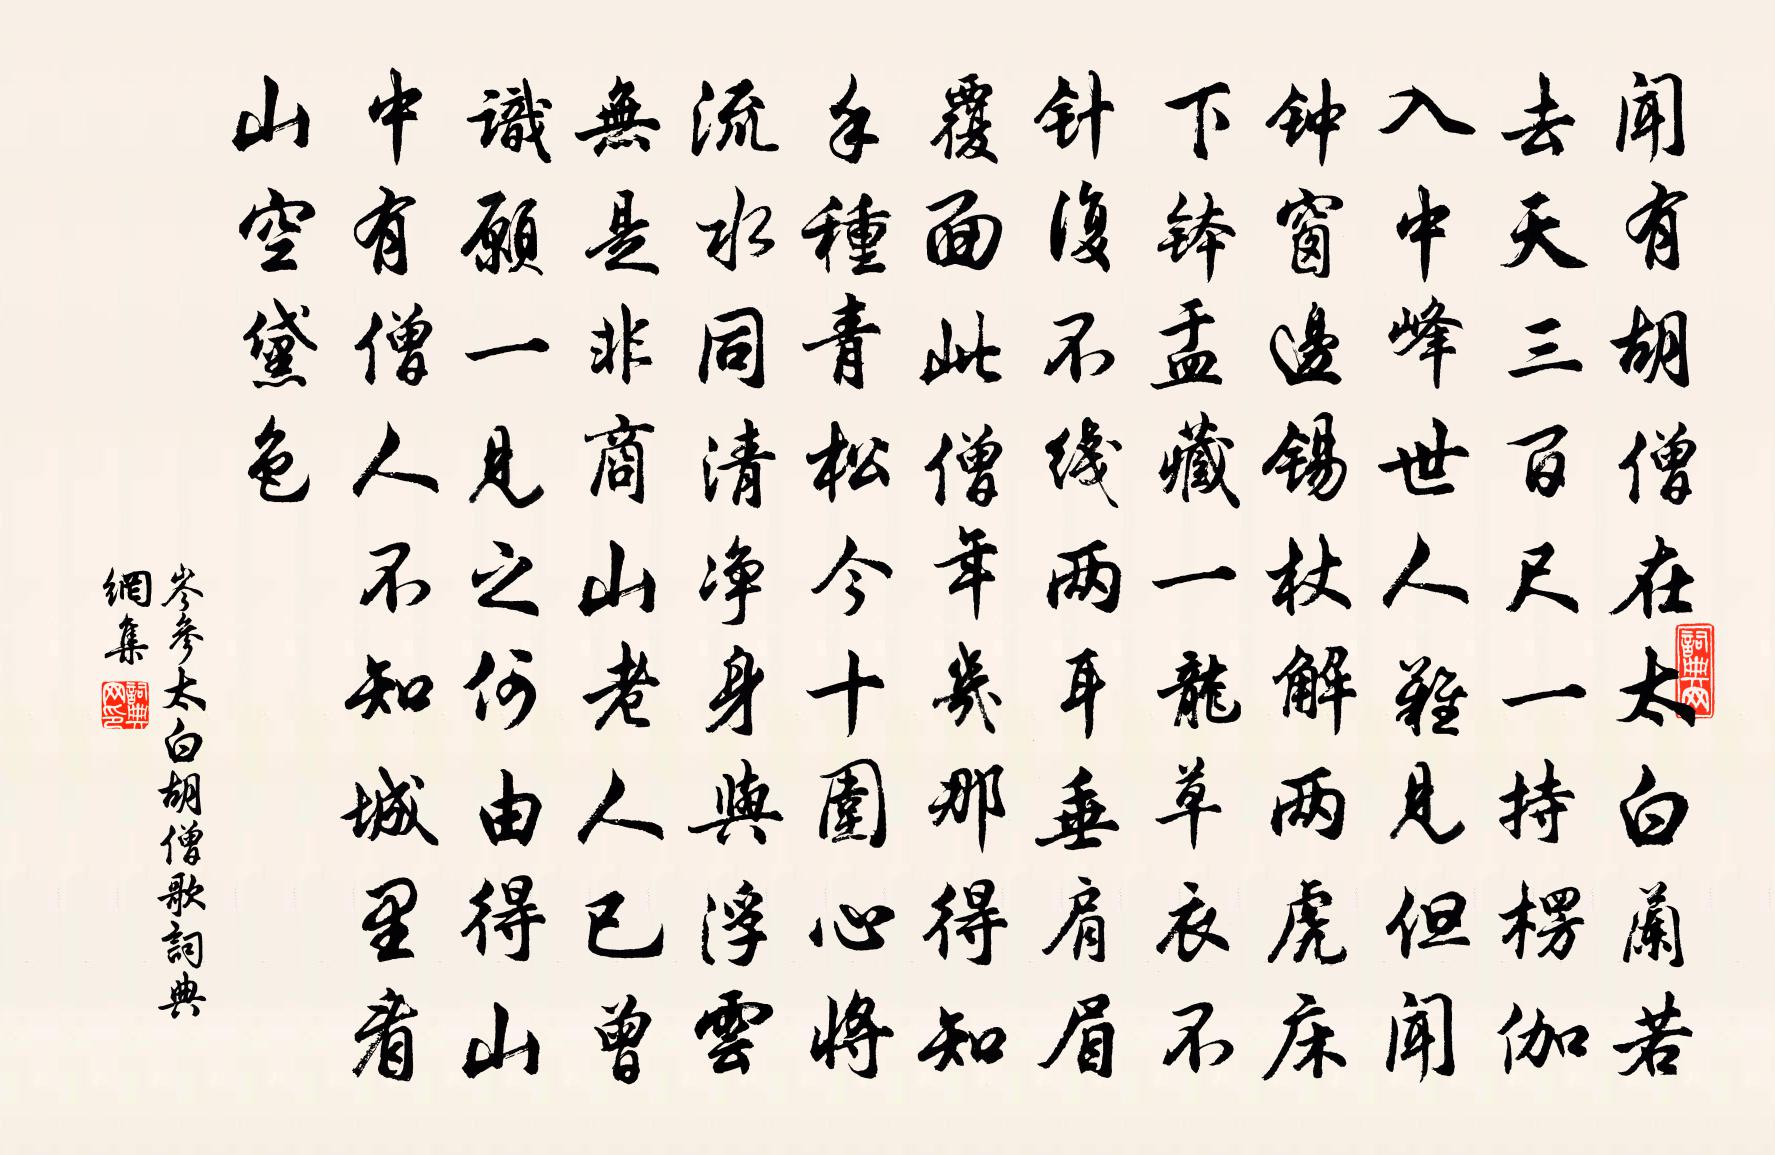 闻有胡僧在太白蘭若
去天三百尺一持楞伽
入中峰世人難見但闻
钟窗邊锡杖解两虎床
下钵盂藏一龍草衣不
针復不线两耳垂肩眉
覆面此僧年幾那得知
手種青松今十圍心將
流水同清净身與浮雲
無是非商山老人已曾
識願一見之何由得山
中有僧人不知城里看
山空黛色
岑參太白胡僧歌詞典
網集
詞典网
詞典网印